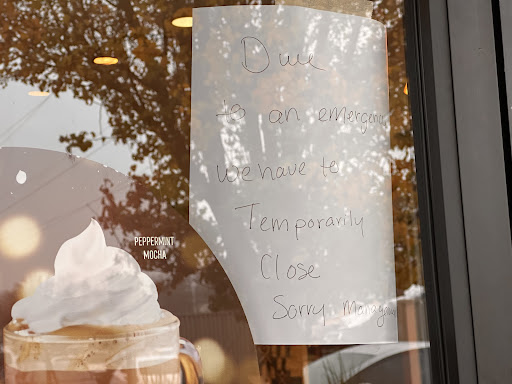 Due
to an emergency
we have to
Temporarily
Close
Sorry
PEPPERMINT
MOCHA